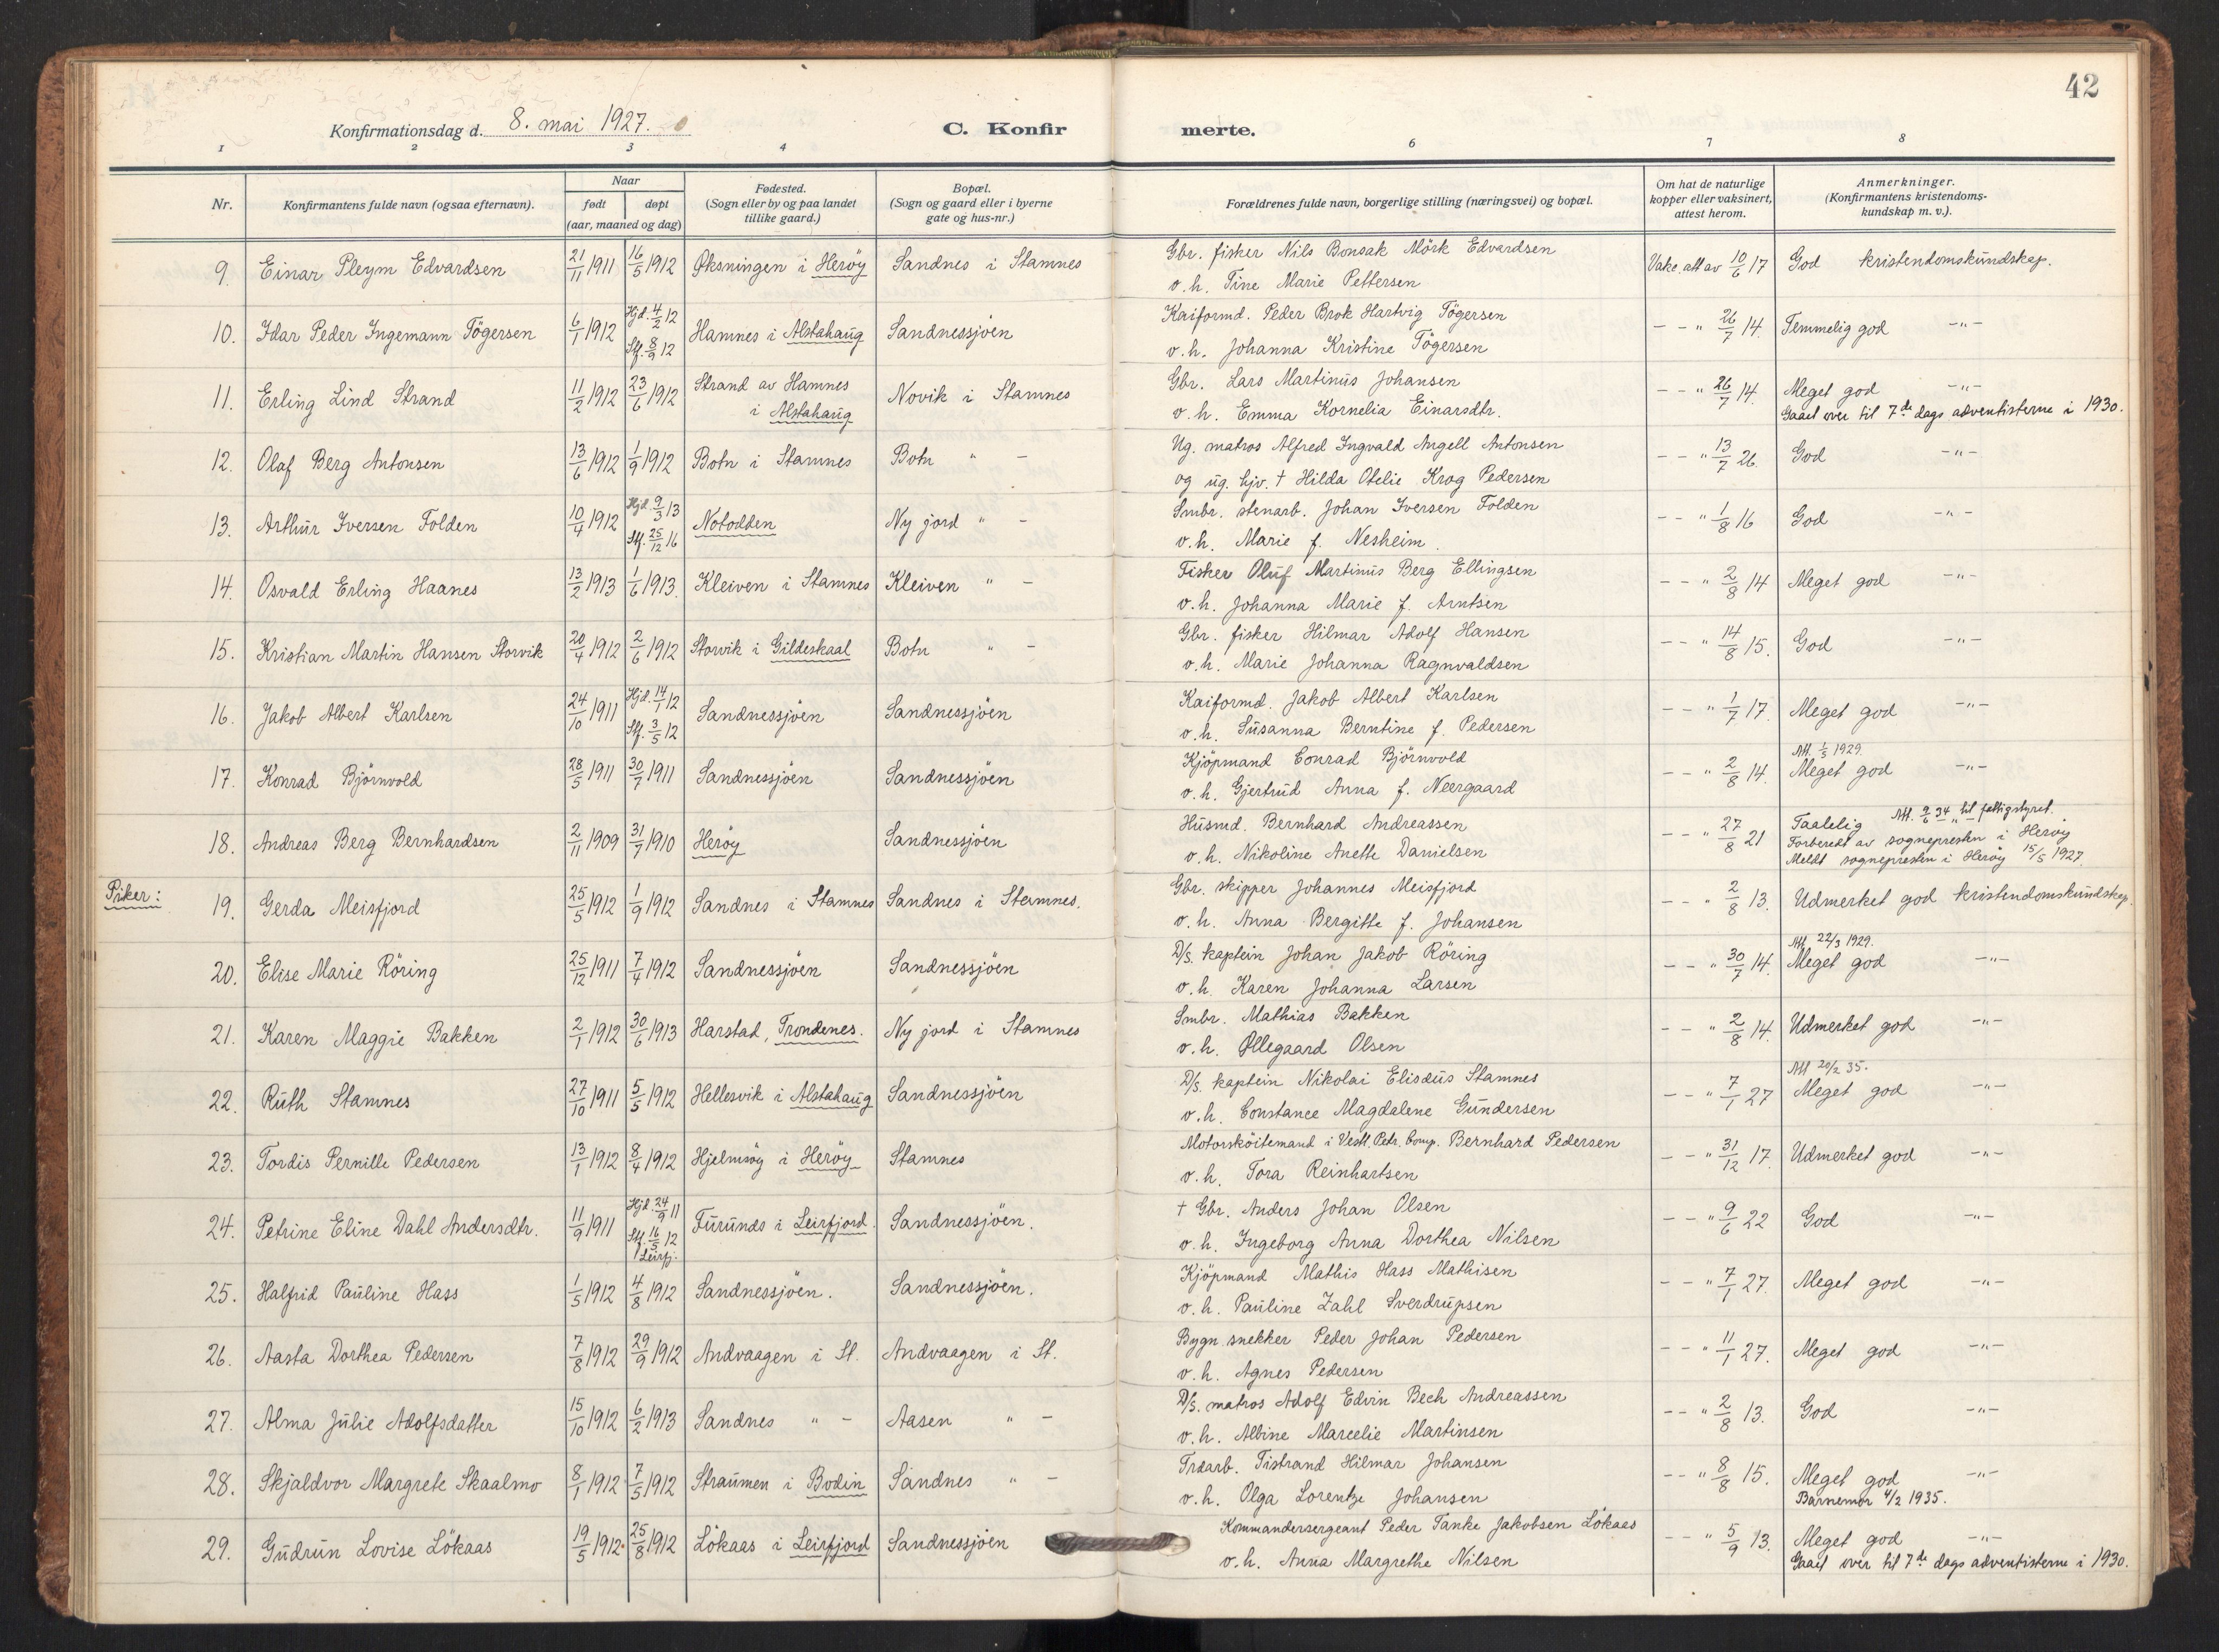 42
Konfirmationsdag d. 8. mai 1927.
C. Konfirmerte.
1 2 3 4 6 7 8
Nr. Konfirmantens fulde navn (ogsaa efternavn). Naar født døpt (aar, maaned og dag) Fødested. (Sogn eller by og paa landet tillike gaard.) Bopæl. (Sogn og gaard eller i byerne gate og hus-nr.) Forældrenes fulde navn, borgerlige stilling (næringsvei) og bopæl. Om hat de naturlige kopper eller vaksinert, attest herom. Anmerkninger. (Konfirmantens kristendoms-kundskap m. v.).
9. Einar Pleym Edvardsen 21/11 1911 16/5 1912 Øksningen i Heröy Sandnes i Stamnes Gbr. fisker Nils Bonsak Mörk Edvardsen
o. h. Tine Marie Pettersen Vakc. att av 10/6 17 God kristendomskundskap.
10. Idar Peder Ingemann Tögersen 6/1 1912 Hjd. 4/2 12 Stf. 8/9 12 Hamnes i Alstahaug Sandnessjöen Kaiformd. Peder Brok Hartvig Tögersen
o. h. Johanna Kristine Tögersen – – " 26/7 14. Temmelig god –"–
11. Erling Lind Strand 11/2 1912 23/6 1912 Strand av Hamnes i Alstahaug Novik i Stamnes Gbr. Lars Martinus Johansen
o. h. Emma Kornelia Einarsdtr. – – " 26/7 14. Meget god –"–
Gaaet over til 7de dags adventisterne i 1930.
12. Olaf Berg Antonsen 13/6 1912 1/9 1912 Botn i Stamnes Botn " – Ug. matros Alfred Ingvald Angell Antonsen
og ug. hjv. † Hilda Otelie Krog Pedersen – – " 13/7 26. God –"–
13. Arthur Iversen Folden 10/4 1912 Hjd. 9/3 13 Stf. 25/12 16 Notodden Ny jord " – Smbr. stenarb. Johan Iversen Folden
o. h. Marie f. Nesheim. – – " 1/8 16 God –"–
14. Osvald Erling Haanes 13/2 1913 1/6 1913. Kleiven i Stamnes Kleiven " – Fisker Oluf Martinus Berg Ellingsen
o. h. Johanna Marie f. Arntsen – – " 2/8 14 Meget god –"–
15. Kristian Martin Hansen Storvik 20/4 1912 2/6 1912 Storvik i Gildeskaal Botn " – Gbr. fisker Hilmar Adolf Hansen
o. h. Marie Johanna Ragnvaldsen – – " 14/8 15. God –"–
16. Jakob Albert Karlsen 24/10 1911 Hjd. 14/1 12 Stf. 3/5 12 Sandnessjöen Sandnessjöen Kaiformd. Jakob Albert Karlsen
o. h. Susanna Berntine f. Pedersen – – " 1/7 17. Meget god –"–
17. Konrad Björnvold 28/5 1911 30/7 1911 Sandnessjöen Sandnessjöen Kjöpmand Conrad Björnvold
o. h. Gjertrud Anna f. Neergaard – – " 2/8 14. Att. 1/5 1929.
Meget god –"–
18. Andreas Berg Bernhardsen 2/11 1909 31/7 1910 Heröy Sandnessjöen Husmd. Bernhard Andreassen
o. h. Nikoline Anette Danielsen – – " 27/8 21 Taalelig Att. 9/6 34 til fattigstyret.
Forberedt av sognepresten i Heröy
Meldt sognepresten i Heröy 15/5 1927.
Piker:
19. Gerda Meisfjord 25/5 1912 1/9 1912 Sandnes i Stamnes Sandnes i Stamnes. Gbr. skipper Johannes Meisfjord
o. h. Anna Bergitte f. Johansen – – " 2/8 13. Udmerket god kristendomskundskap.
20. Elise Marie Röring 25/12 1911 7/4 1912 Sandnessjöen Sandnessjöen D/S. kaptein Johan Jakob Röring
o. h. Karen Johanna Larsen – – " 30/7 14. Att. 22/3 1929.
Meget god –"–
21. Karen Maggie Bakken 2/1 1912 30/6 1913 Harstad, Trondenes. Ny jord i Stamnes Smbr. Mathias Bakken
o. h. Øllegaard Olsen – – " 2/8 14. Udmerket god –"–
22. Ruth Stamnes 27/10 1911 5/5 1912 Hellesvik i Alstahaug Sandnessjöen D/S. kaptein Nikolai Elisæus Stamnes
o. h. Constance Magdalene Gundersen – – " 7/1 27 Att 20/2 35.
Meget god –"–
23. Tordis Pernille Pedersen 13/1 1912 8/4 1912 Hjelmsöy i Heröy Stamnes Motorsköitemand i Vestl. Petr. Comp. Bernhard Pedersen
o. h. Tora Reinhartsen – – " 31/12 17. Udmerket god –"–
24. Petrine Eline Dahl Andersdtr. 11/9 1911 Hjd. 24/9 11 Stf. 16/5 12 Leirfj. Furunes i Leirfjord. Sandnessjöen. † Gbr. Anders Johan Olsen
o. h. Ingeborg Anna Dorthea Nilsen – – " 9/6 22 God –"–
25. Halfrid Pauline Hass 1/5 1912 4/8 1912 Sandnessjöen. Sandnessjöen. Kjöpmand Mathis Hass Mathisen
o. h. Pauline Zahl Sverdrupsen – – " 7/1 27. Meget god –"–
26. Aasta Dorthea Pedersen 7/8 1912 29/9 1912 Andvaagen i St. Andvaagen i St. Bygn. snekker Peder Johan Pedersen
o. h. Agnes Pedersen – – " 11/1 27. Meget god –"–
27. Alma Julie Adolfsdatter 15/10 1912 6/2 1913 Sandnes " – Aasen " – D/S. matros Adolf Edvin Bech Andreassen
o. h. Albine Marcelie Martinsen – – " 2/8 13. God –"–
28. Skjaldvor Margrete Skaalmo 8/1 1912 7/5 1912 Straumen i Bodin Sandnes " – Træarb. Tistrand Hilmar Johansen
o. h. Olga Lorentze Johansen – – " 8/8 15. Meget god –"–
Barnemor 4/2 1935.
29. Gudrun Lovise Lökaas 19/5 1912. 25/8 1912 Lökaas i Leirfjord Sandnessjöen Kommandersergeant Peder Tanke Jakobsen Lökaas
o. h. Anna Margrethe Nilsen – – " 5/9 13. Meget god –"–
Gaaet over til 7de dags adventisterne i 1930.